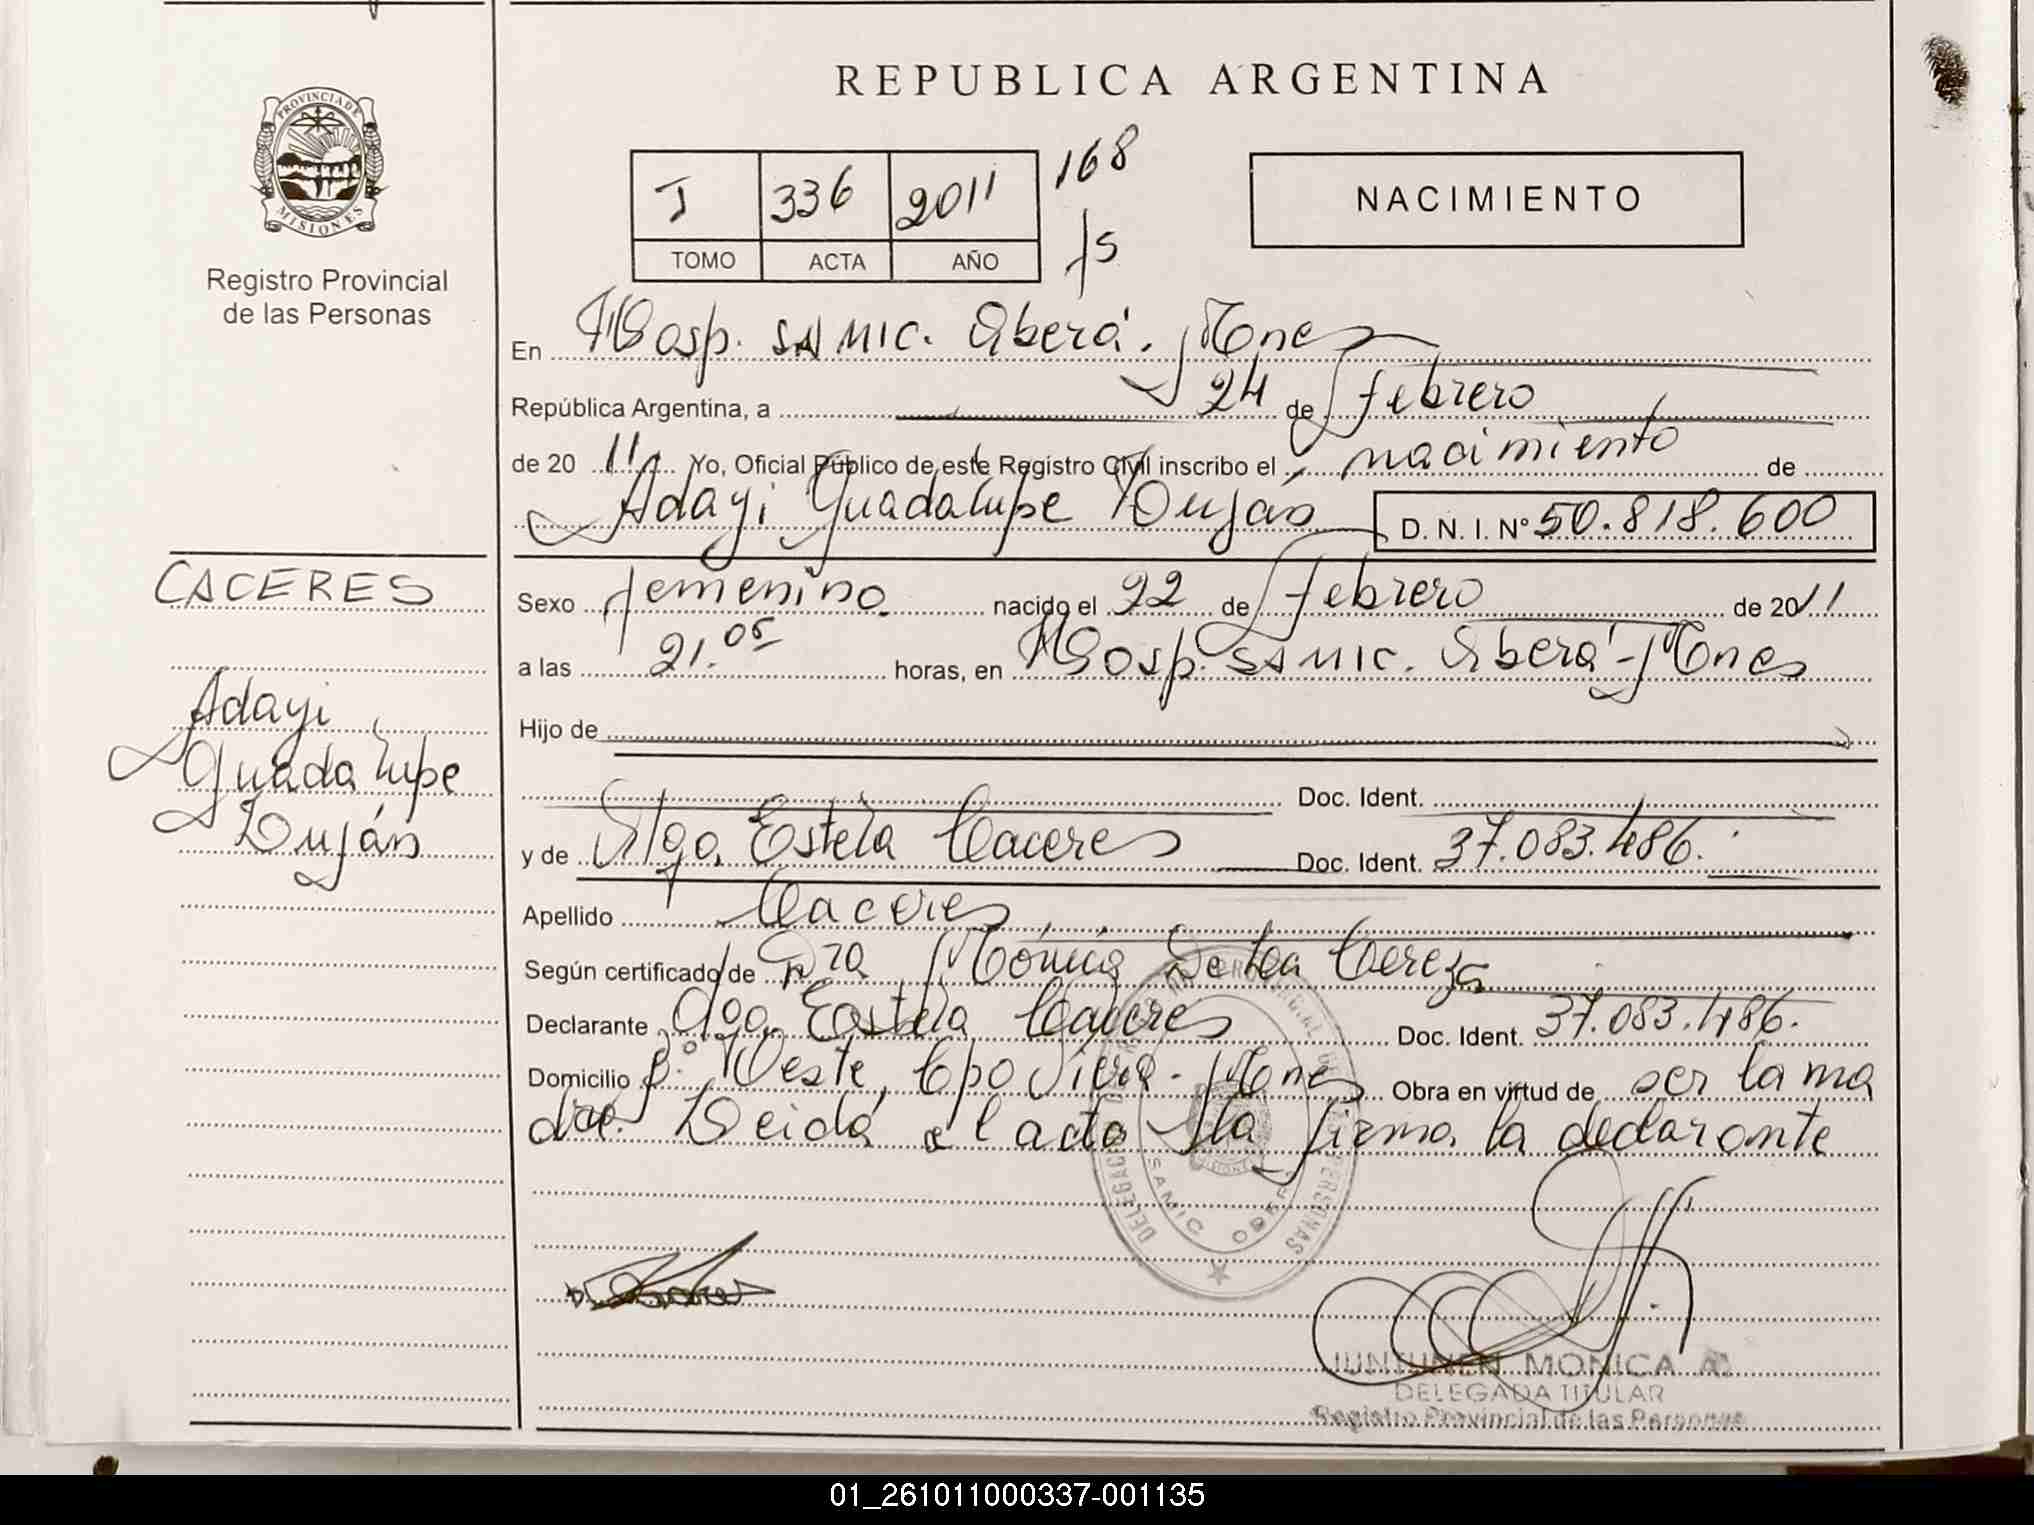 REPUBLICA ARGENTINA
PROVINCIA DE MISIONES
Registro Provincial
de las Personas
J 336 2011 168
TOMO ACTA AÑO fs
NACIMIENTO
En Hosp. SAMIC. Oberá. Mnes
República Argentina, a 24 de febrero
de 2011 Yo, Oficial Público de este Registro Civil inscribo el nacimiento de
Adayi Guadalupe Luján D. N. I. Nº 50.818.600
CACERES
Adayi
Guadalupe
Luján
Sexo femenino nacido el 22 de febrero de 2011
a las 21.05 horas, en Hosp. SAMIC. Oberá - Mnes
Hijo de
Doc. Ident.
y de Olga Estela Caceres Doc. Ident. 37.083.486.
Apellido Caceres
Según certificado de Dra Mónica De La Cereza
Declarante Olga Estela Caceres Doc. Ident. 37.083.486.
Domicilio Bº Oeste, Cpo Viera - Mnes Obra en virtud de ser la ma
dre. Leida el acta la firma la declarante
DELEGACION PROVINCIAL DE LAS PERSONAS
SAMIC OBERA
JUNTUNEN MONICA A.
DELEGADA TITULAR
Registro Provincial de las Personas
01_261011000337-001135